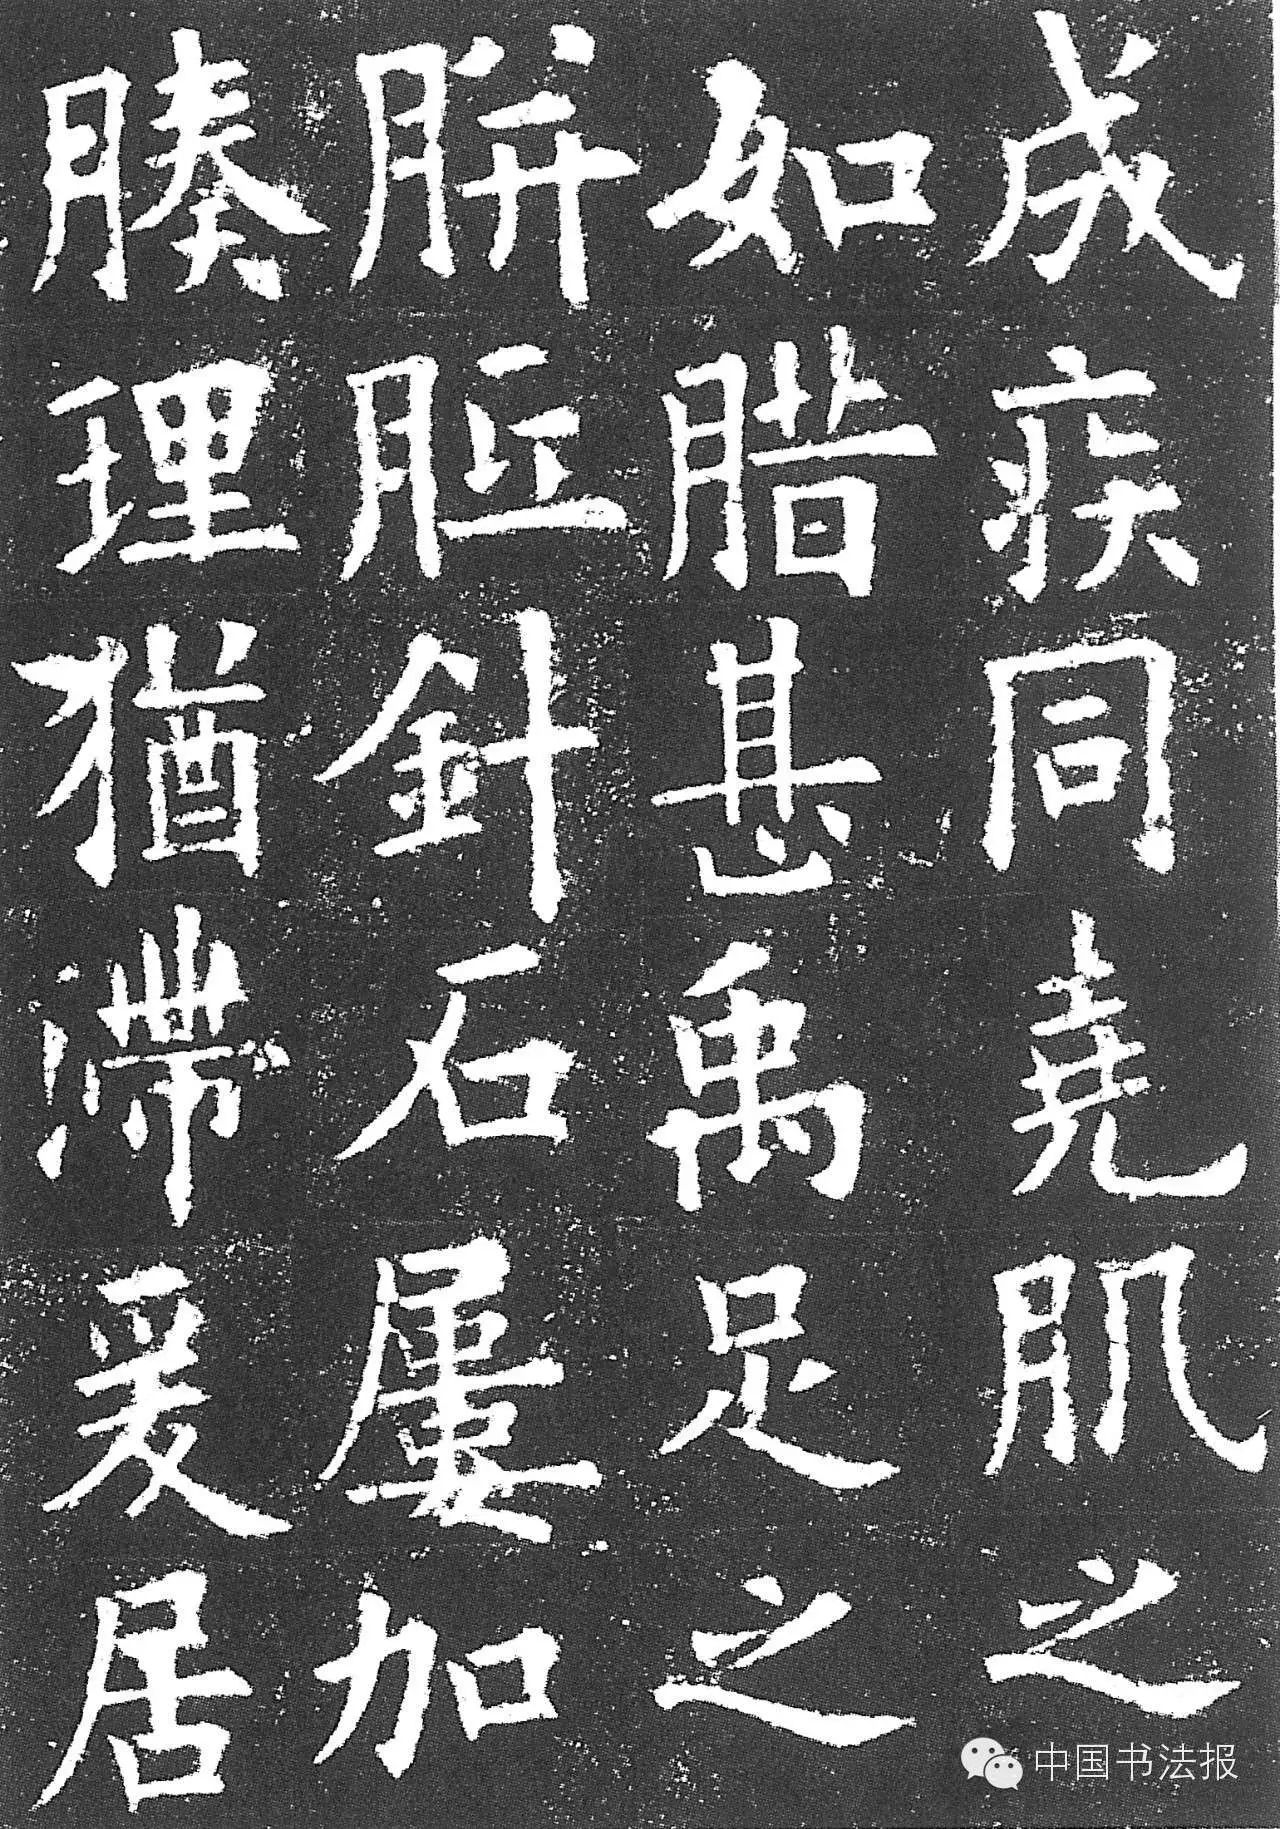 成疾同堯肌之
如腊甚禹足之
胼胝針石屢加
腠理猶滯爰居
中国书法报